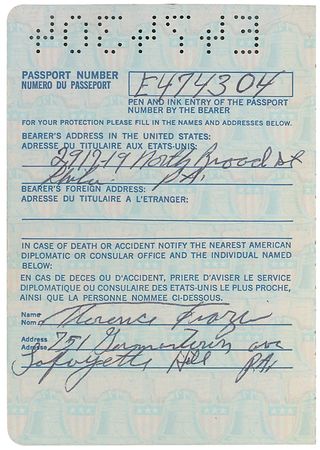 PASSPORT NUMBER
NUMERO DU PASSEPORT
E474304
PEN AND INK ENTRY OF THE PASSPORT
NUMBER BY THE BEARER
FOR YOUR PROTECTION PLEASE FILL IN THE NAMES AND ADDRESSES BELOW.
BEARER'S ADDRESS IN THE UNITED STATES:
ADRESSE DU TITULAIRE AUX ETATS-UNIS:
2917-19 North Broad St
Phila. PA.
BEARER'S FOREIGN ADDRESS:
ADRESSE DU TITULAIRE A L'ETRANGER:
IN CASE OF DEATH OR ACCIDENT NOTIFY THE NEAREST AMERICAN
DIPLOMATIC OR CONSULAR OFFICE AND THE INDIVIDUAL NAMED
BELOW:
EN CAS DE DECES OU D'ACCIDENT, PRIERE D'AVISER LE SERVICE
DIPLOMATIQUE OU CONSULAIRE DES ETATS-UNIS LE PLUS PROCHE,
AINSI QUE LA PERSONNE NOMMEE CI-DESSOUS.
Name
Nom
Florence
Address
Adresse
751 Germantown ave
Lafayette Hill PA.